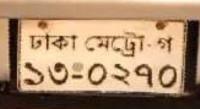 ঢাকা মেট্রো-গ
১৩-০২৭০